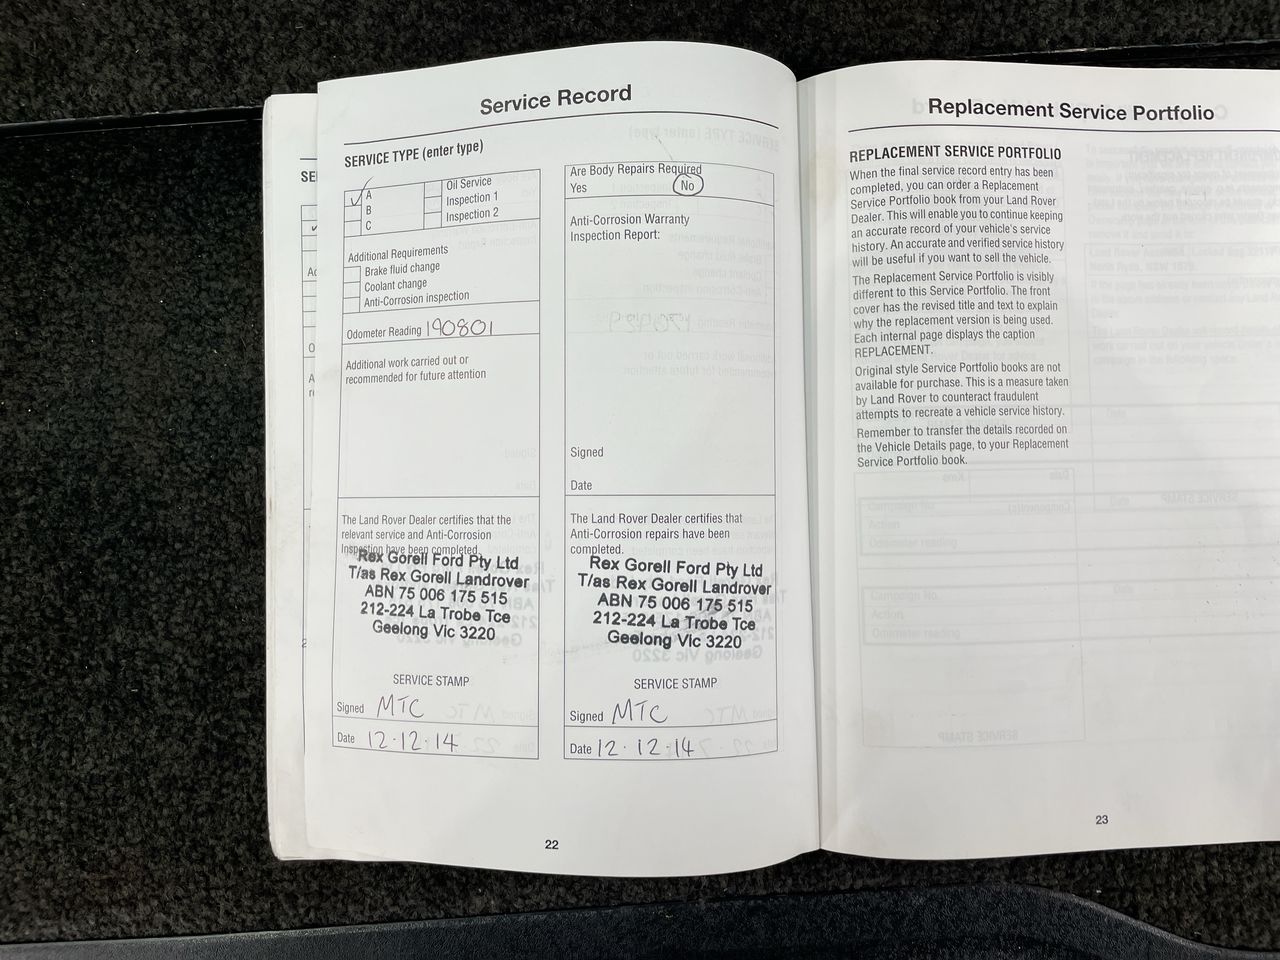 Service Record
SERVICE TYPE (enter type)
A
B
C
Oil Service
Inspection 1
Inspection 2
Additional Requirements
Brake fluid change
Coolant change
Anti-Corrosion inspection
Odometer Reading 190801
Additional work carried out or
recommended for future attention
The Land Rover Dealer certifies that the
relevant service and Anti-Corrosion
Inspection have been completed.
Rex Gorell Ford Pty Ltd
T/as Rex Gorell Landrover
ABN 75 006 175 515
212-224 La Trobe Tce
Geelong Vic 3220
SERVICE STAMP
Signed MTC
Date 12.12.14
Are Body Repairs Required
Yes No
Anti-Corrosion Warranty
Inspection Report:
Signed
Date
The Land Rover Dealer certifies that
Anti-Corrosion repairs have been
completed.
Rex Gorell Ford Pty Ltd
T/as Rex Gorell Landrover
ABN 75 006 175 515
212-224 La Trobe Tce
Geelong Vic 3220
SERVICE STAMP
Signed MTC
Date 12.12.14
22
Replacement Service Portfolio
REPLACEMENT SERVICE PORTFOLIO
When the final service record entry has been
completed, you can order a Replacement
Service Portfolio book from your Land Rover
Dealer. This will enable you to continue keeping
an accurate record of your vehicle's service
history. An accurate and verified service history
will be useful if you want to sell the vehicle.
The Replacement Service Portfolio is visibly
different to this Service Portfolio. The front
cover has the revised title and text to explain
why the replacement version is being used.
Each internal page displays the caption
REPLACEMENT.
Original style Service Portfolio books are not
available for purchase. This is a measure taken
by Land Rover to counteract fraudulent
attempts to recreate a vehicle service history.
Remember to transfer the details recorded on
the Vehicle Details page, to your Replacement
Service Portfolio book.
23